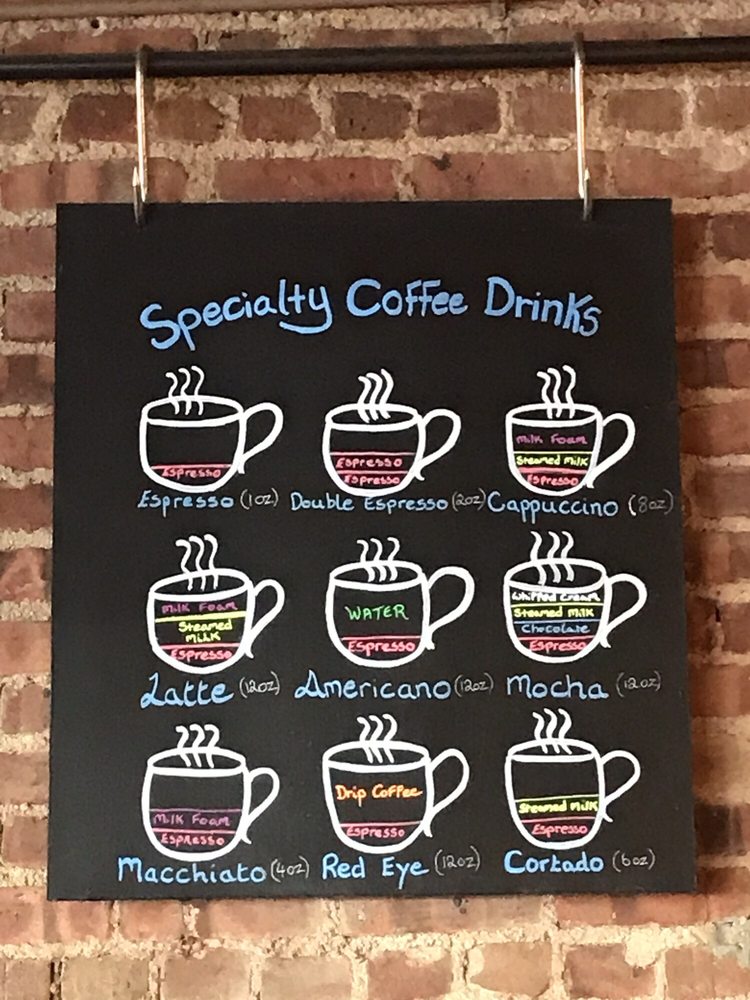 Specialty Coffee Drinks
Espresso
Espresso (1oz)
Espresso
Espresso
Double Espresso (2oz)
Milk Foam
Steamed Milk
Espresso
Cappuccino (8oz)
Milk Foam
Steamed
Milk
Espresso
Latte (12oz)
WATER
Espresso
Americano (12oz)
Whipped Cream
Steamed Milk
Chocolate
Espresso
Mocha (12oz)
Milk Foam
Espresso
Macchiato (4oz)
Drip Coffee
Espresso
Red Eye (12oz)
Steamed Milk
Espresso
Cortado (6oz)